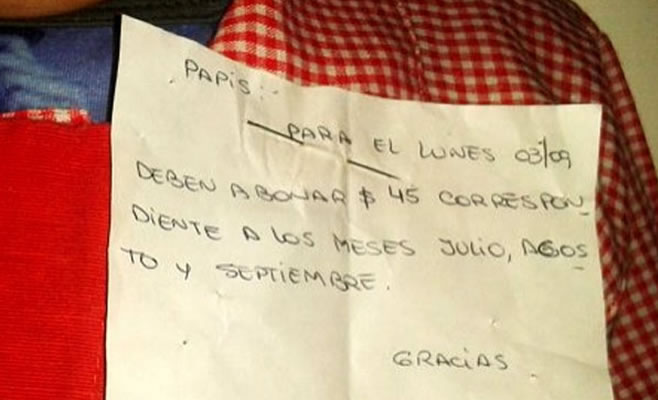 PAPIS:
PARA EL LUNES 03/09
DEBEN ABONAR $ 45 CORRESPON_
DIENTE A LOS MESES JULIO, AGOS_
TO Y SEPTIEMBRE.
GRACIAS.